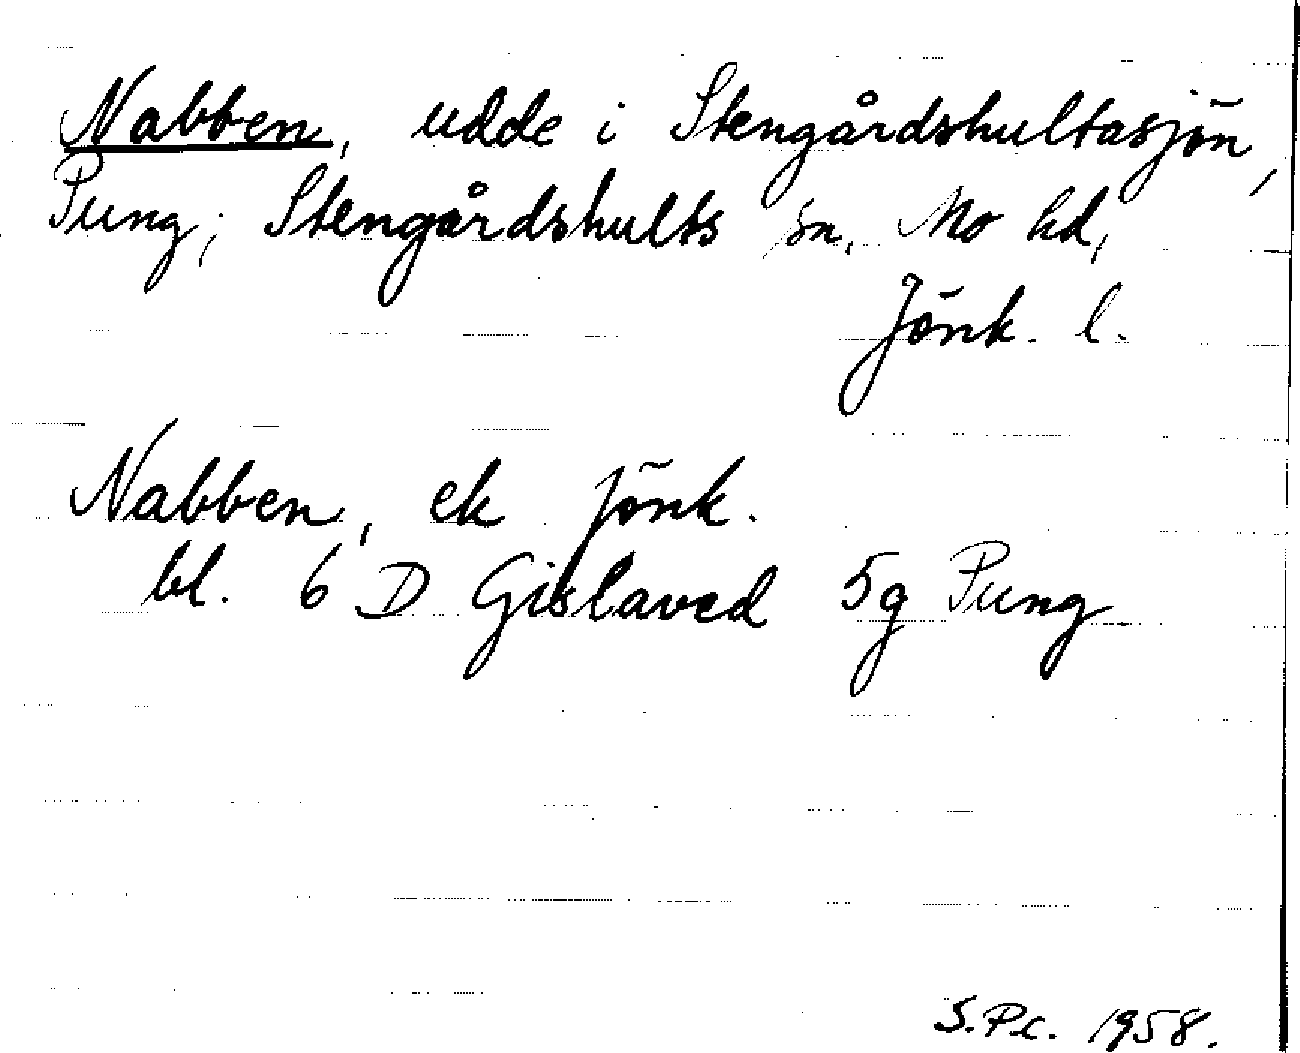 Nabben, udde i Stengårdshultasjön,
Pung; Stengårdshults sn, Mo hd,
Jönk. l.
Nabben, ek Jönk.
bl. 6 D Gislaved 5g Pung
S.Pc. 1958.